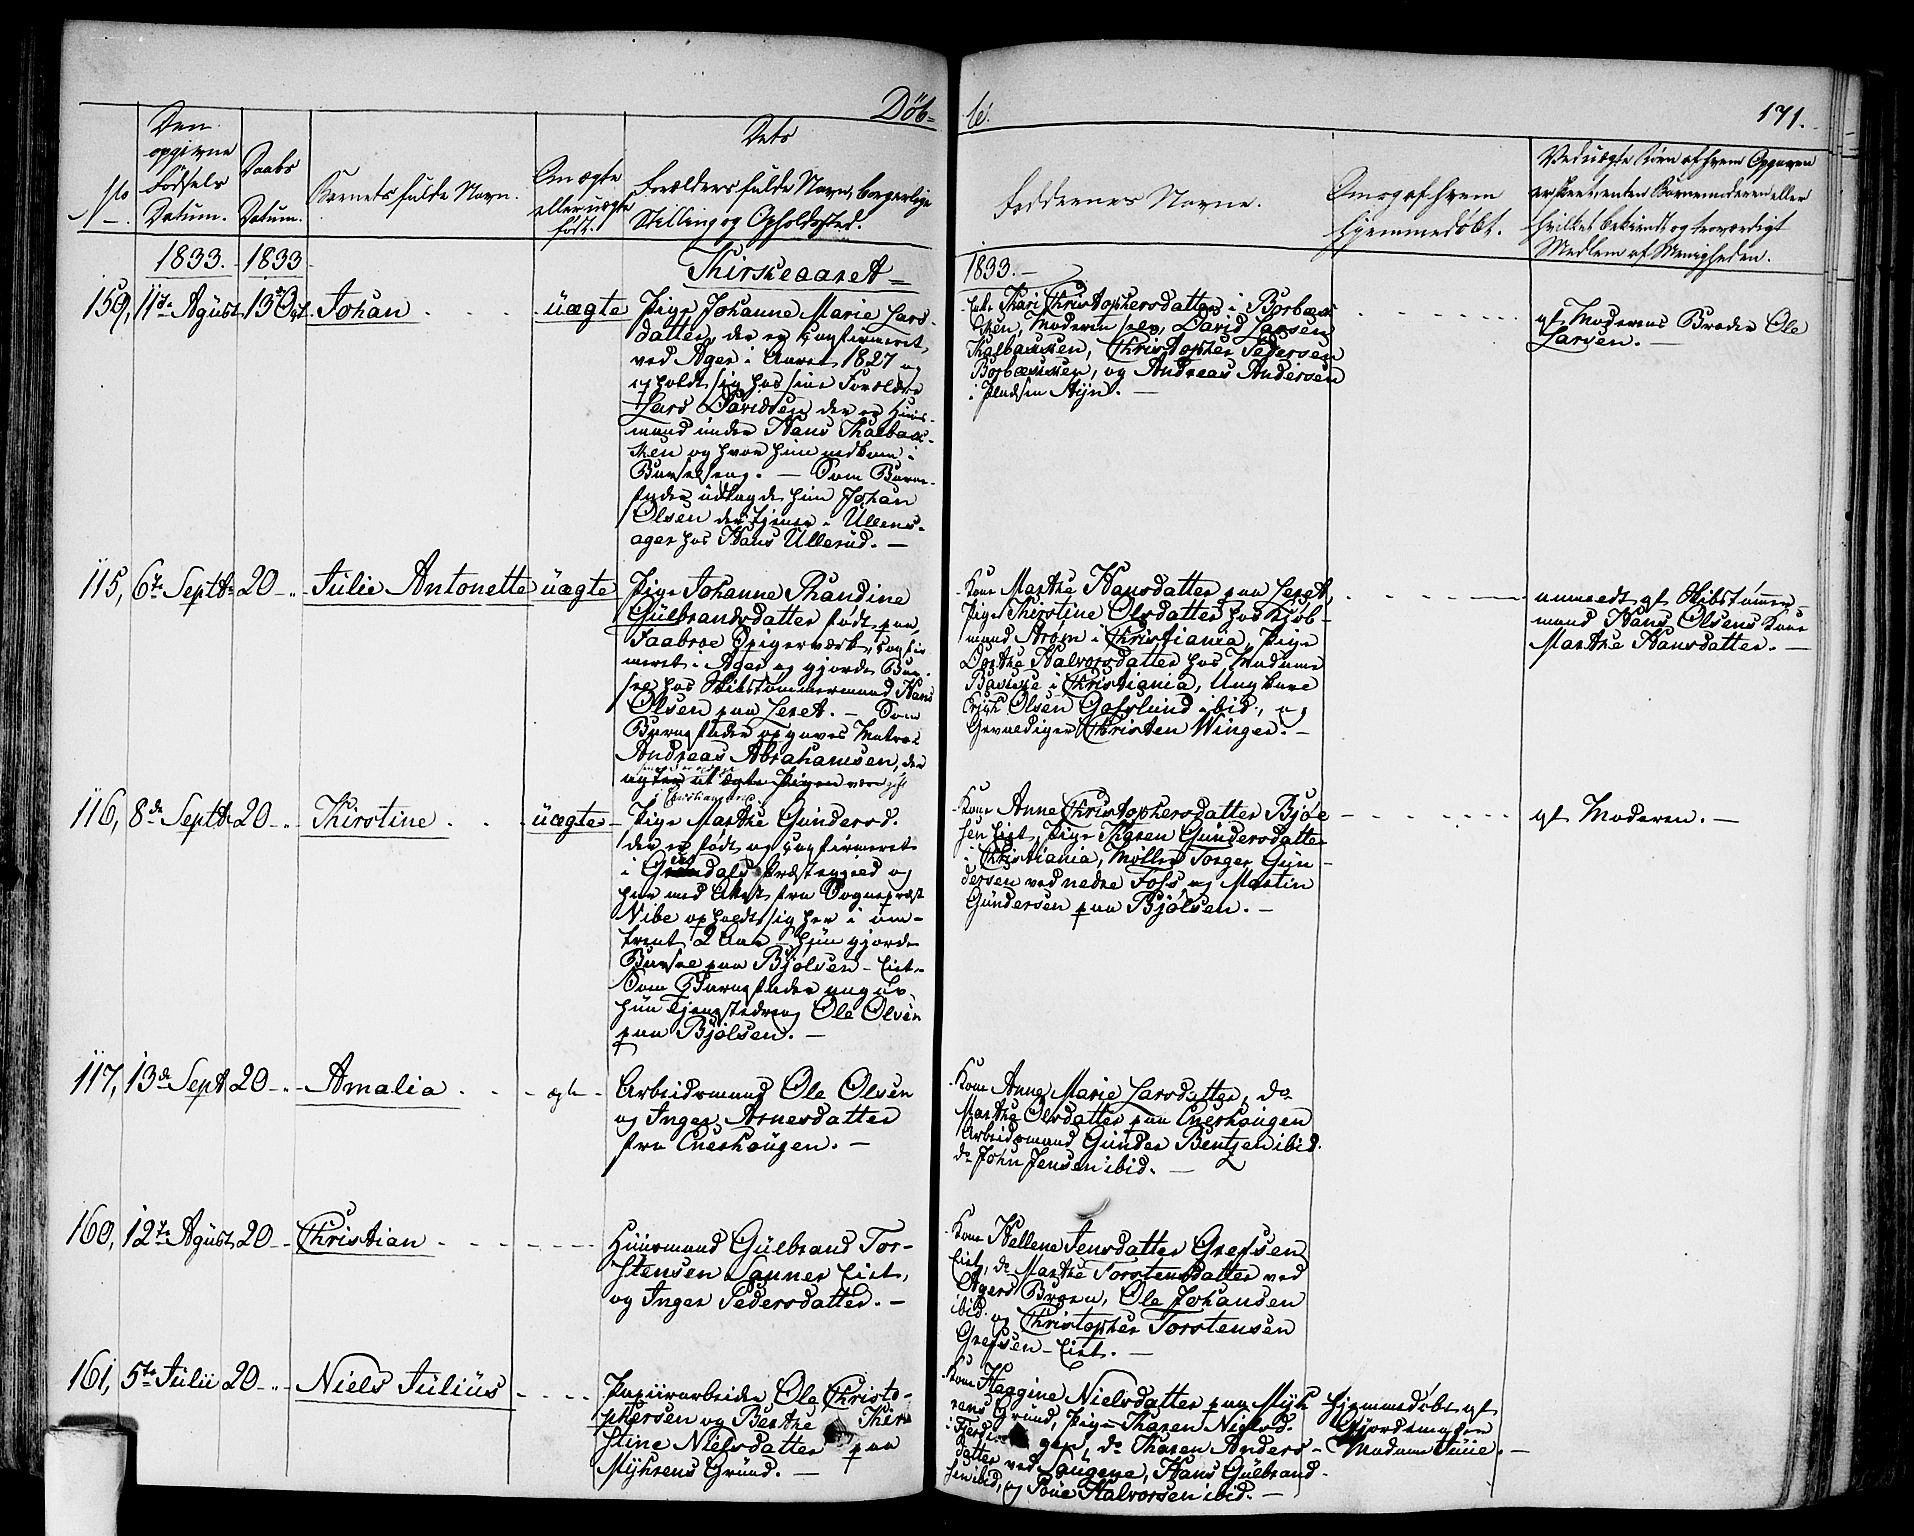 Döb-
te.
171.
No
Den
opgivne
Fødsels
Datum.
Daabs
Datum.
Barnets fulde Navn.
Om ægte
eller uægte
født.
Dets
Forældres fulde Navn, borgerlige
Stilling og Opholdssted.
Faddernes Navne.
Om og af hvem
hjemmedøbt.
Ved uægte Børn af hvem Opgaven
er skeet, enten Barnemoderen eller
hvilket bekiendt og troværdigt
Medlem af Menigheden.
1833.
1833
Kirkeaaret
1833.
159, 11te Agust 13de Oct Johan uægte
Pige Johanne Marie Lars-
datter, der er Confirmeret
ved Ager i Aaret 1827 og
opholdt sig hos sine Forældre
Lars Davidsen der er Huus-
mand under Hans Thalbac-
ken og hvor hun nedkom i
Barselseng. — Som Barne-
fader udlagde hun Johan
Olsen der tjener i Ullens-
ager hos Hans Ullerud. —
Kari Christophersdatter i Borbæk
ken, Moderen selv, David Larsen
Thalbakken, Christopher Pedersen
Borbækken, og Andreas Andersen
i Pladsen Hijn. —
af Moderens Broder Ole
Larsen. —
115, 6te Septbr 20 - " Julie Antonette uægte
Pige Johanne Randine
Gülbrandsdatter født paa
Saabroe Spigerværk, Confir
meret i Ager og gjorde Bar-
sel hos Skibstømmermand Hans
Olsen paa Leret. — Som
Barnefader opgaves Matros
Andreas Abrahamsen, der
agter at ægte Pigen
i Christiansand
Kone Marthe Hansdatter paa Leret,
Pige Thirstine Olsdatter hos Kjøb-
mand Strøm i Christiania, Pige
Dorthe Halvorsdatter hos Madame
i Christiania, Ungkarl
Erich Olsen Gosslund ibid, og
Gevaldiger Christen Winger. —
anmeldt af Skibstømmer-
mand Hans Olsens Kone
Marthe Hansdatter. —
116, 8de Septbr 20 - " Thirstine uægte
Pige Marthe Gundersd.
der er født og Confirmeret
i Præstegield og
her med Attest fra Sogneprest
Nibe opholdt sig her i om-
trent 2 Aar - hun gjorde
Barsel paa Bjølsen - Eiet -
Som Barnefader angav
hun Tjenestedreng Ole Olsen
paa Bjølsen. —
Kone Anne Christophersdatter Bjøl
sen Eiet, Pige Karen Gundersdatter
i Christiania, Møller Torger Gün-
dersen ved nedre Foss og Martin
Gündersen paa Bjølsen. —
af Moderen. —
117, 13de Sept 20 - " Amalia ægte
Arbeidsmand Ole Olsen
og Inger Arnesdatter
fra Enerhaugen. —
Kone Anne Marie Larsdatter, do
Marthe Olsdatter paa Enerhaugen
Arbeidsmand Günder Bentzen ibid.
do John Jensen ibid. —
160, 12te Agust 20 - " Christian
Huusmand Gülbrand Tor-
stensen Sanner Eiet,
og Inger Pedersdatter. —
Kone Hellene Jensdatter Grefsen
Eiet, do Marthe Torstensdatter ved
Agers Broen, Ole Johansen
ibid. og Christopher Torstensen
Grefsen - Eiet. —
161, 5te Julii 20 - " Niels Julius
Papiirarbeider Ole Christo-
phersen og Berthe Thir
stine Nielsdatter paa
Myhrens Gründ. —
Kone Haagine Nielsdatter paa Myh
rens Gründ, Pige Karen Nielsd.
i do Karen Anders-
datter ved Saugene, Hans Gülbrand-
sen ibid, og Halvorsen ibid. —
Hjemmedøbt af
Gjordemoder
Madam Juue. —